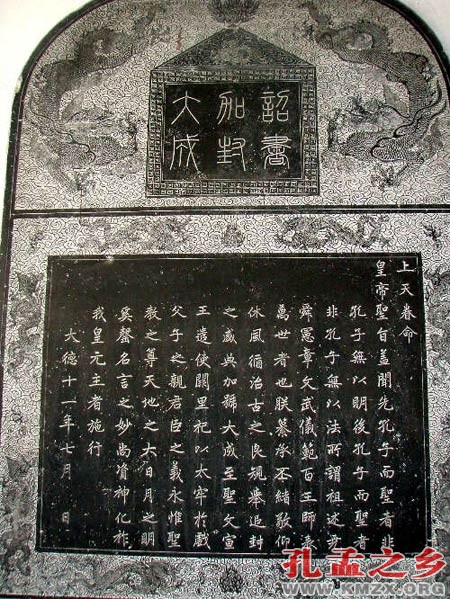 詔書
加封
大成
上天眷命
皇帝聖旨蓋聞先孔子而聖者非
孔子無以明後孔子而聖者
非孔子無以法所謂祖述堯
舜憲章文武儀範百王師表
萬世者也朕纂承丕緒敬仰
休風循治古之良規舉追封
之盛典加號大成至聖文宣
王遣使闕里祀以太牢於戲
父子之親君臣之義永惟聖
教之尊天地之大日月之明
奚罄名言之妙尚資神化祚
我皇元主者施行
大德十一年七月 日
孔孟之乡
WWW.KMZX.ORG